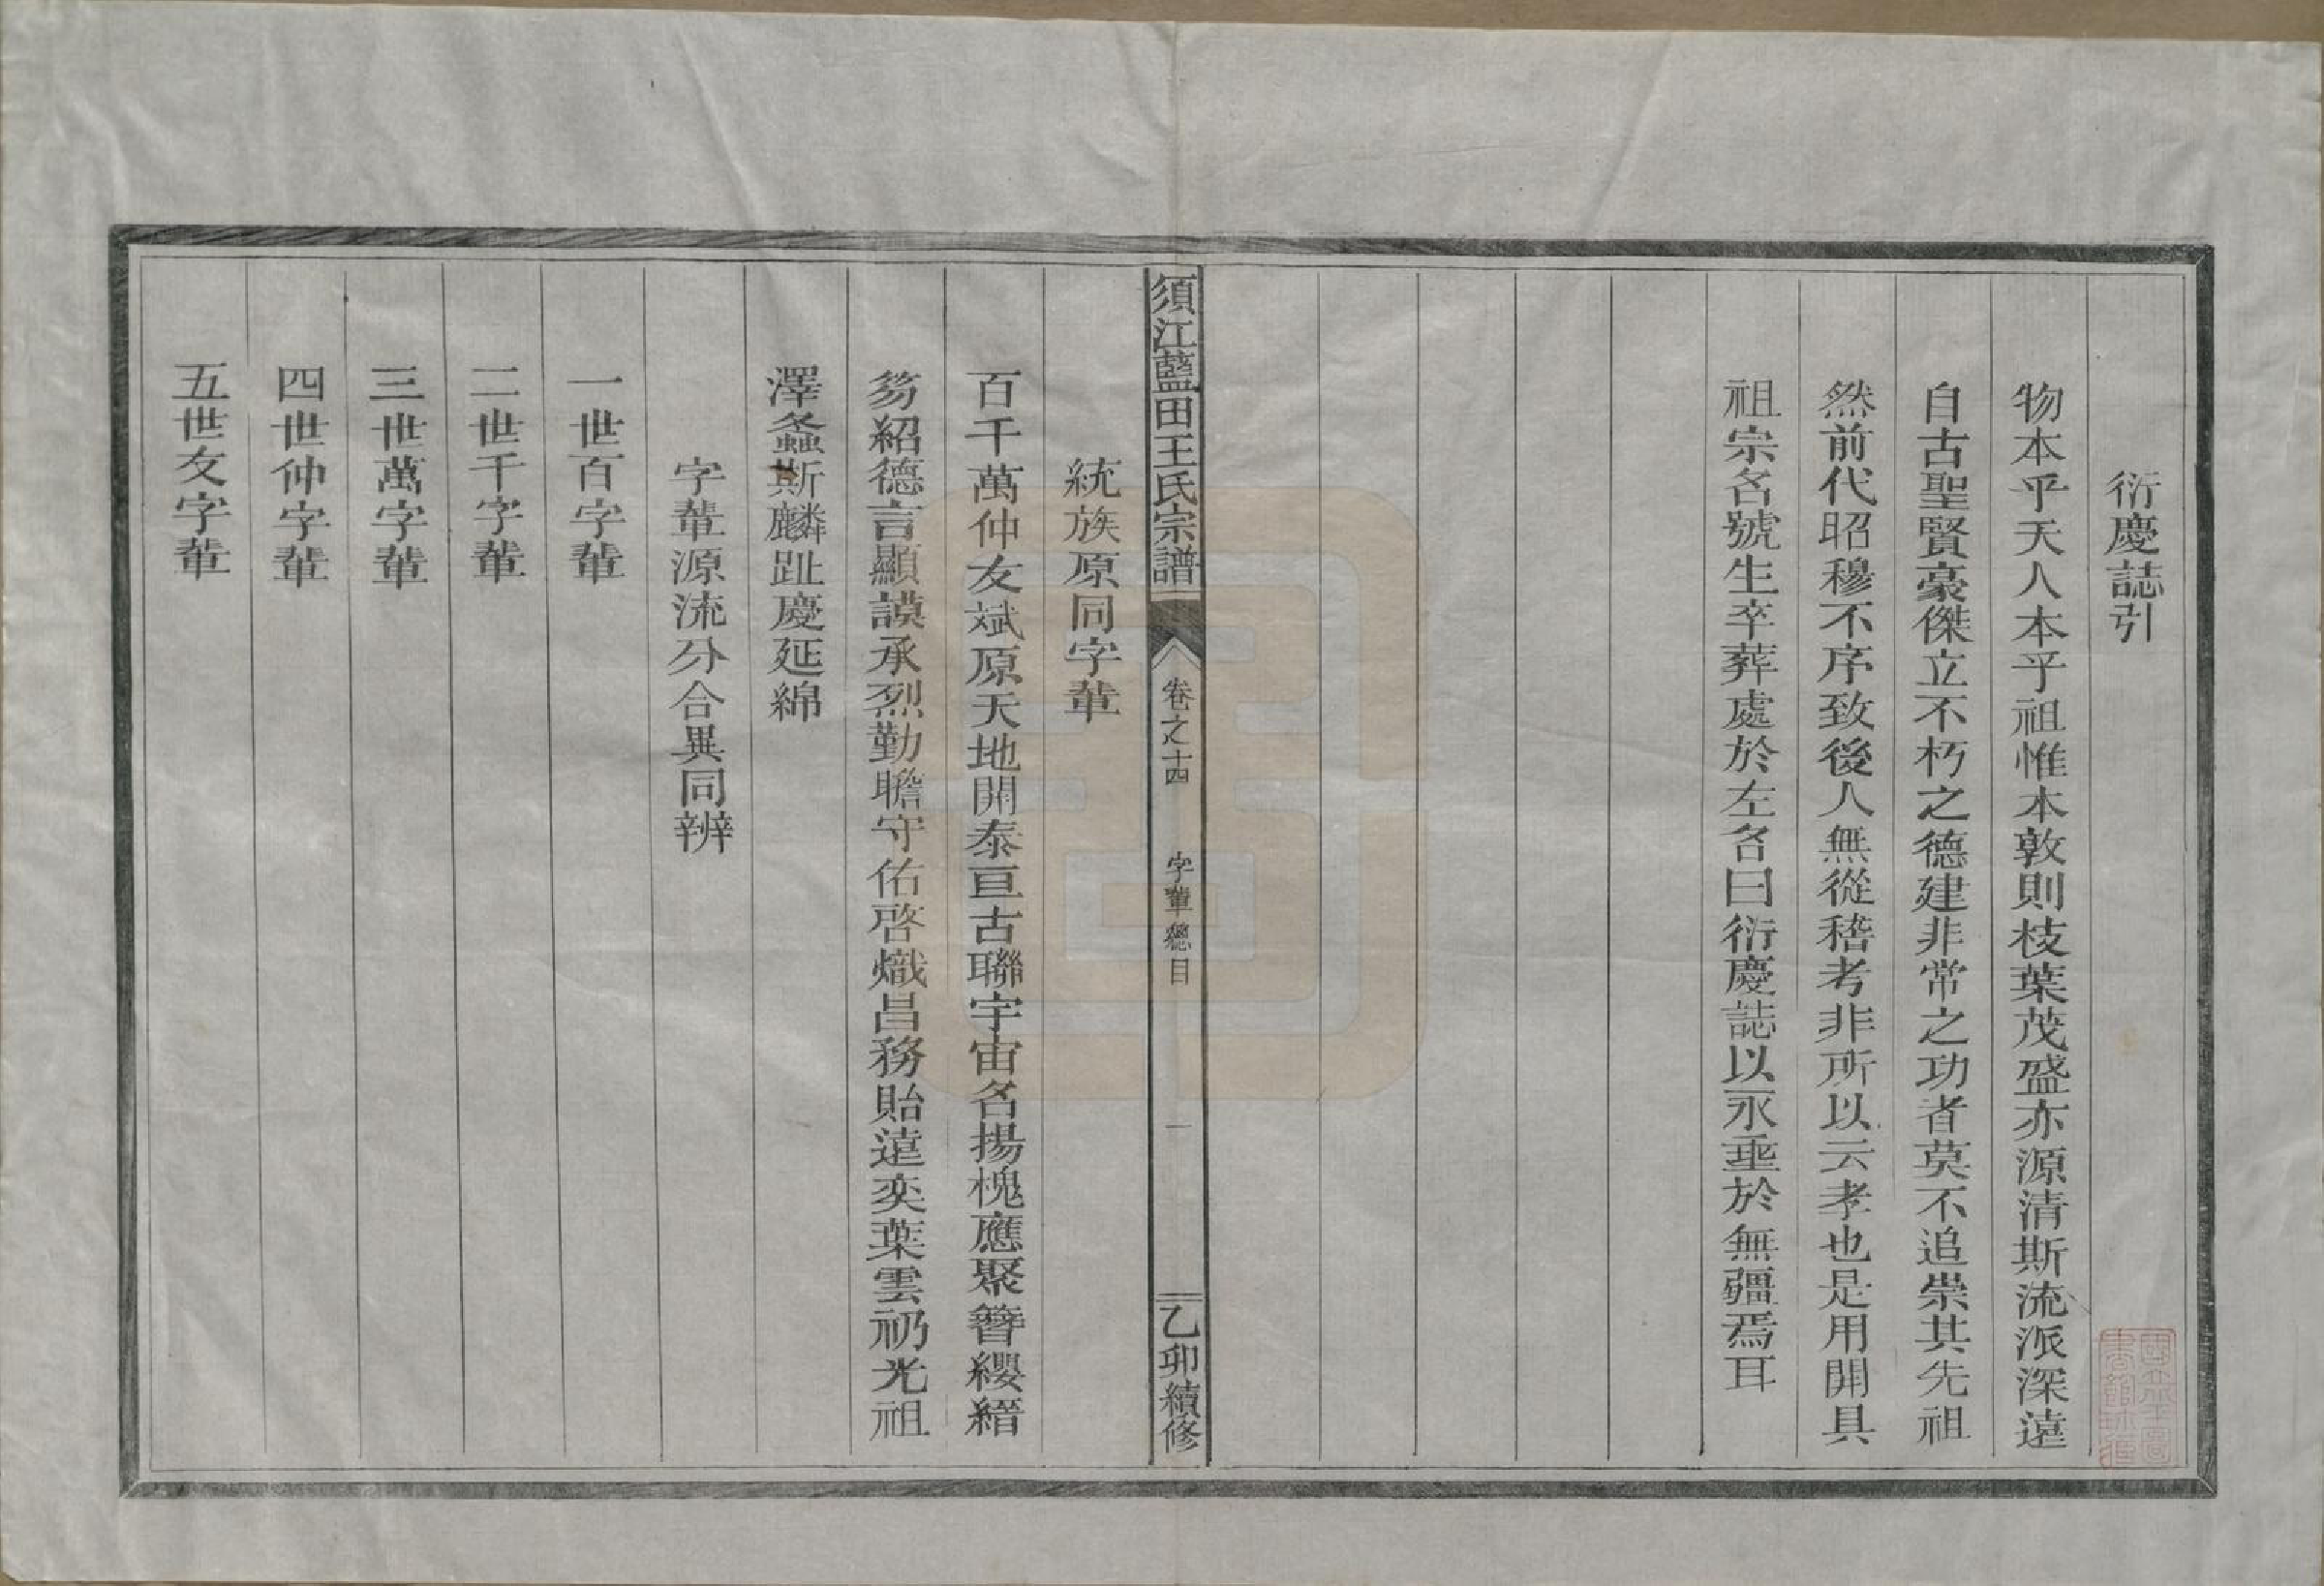 衍慶誌引
物本乎天人本乎祖惟本敦則枝葉茂盛亦源清斯流派深遠
自古聖賢豪傑立不朽之德建非常之功者莫不追崇其先祖
然前代昭穆不序致後人無從稽考非所以云孝也是用開具
祖宗名號生卒葬處於左名曰衍慶誌以永垂於無疆焉耳
須江藍田王氏宗譜
卷之十四
字軰總目
一
乙卯續修
統族原同字軰
百千萬仲友斌原天地開泰亘古聯宇宙名揚槐應聚簪纓縉
笏紹德言顯謨承烈勤瞻守佑啓熾昌務貽遠奕葉雲礽光祖
澤螽斯麟趾慶延綿
字軰源流分合異同辨
一世百字軰
二世千字軰
三世萬字軰
四世仲字軰
五世友字軰